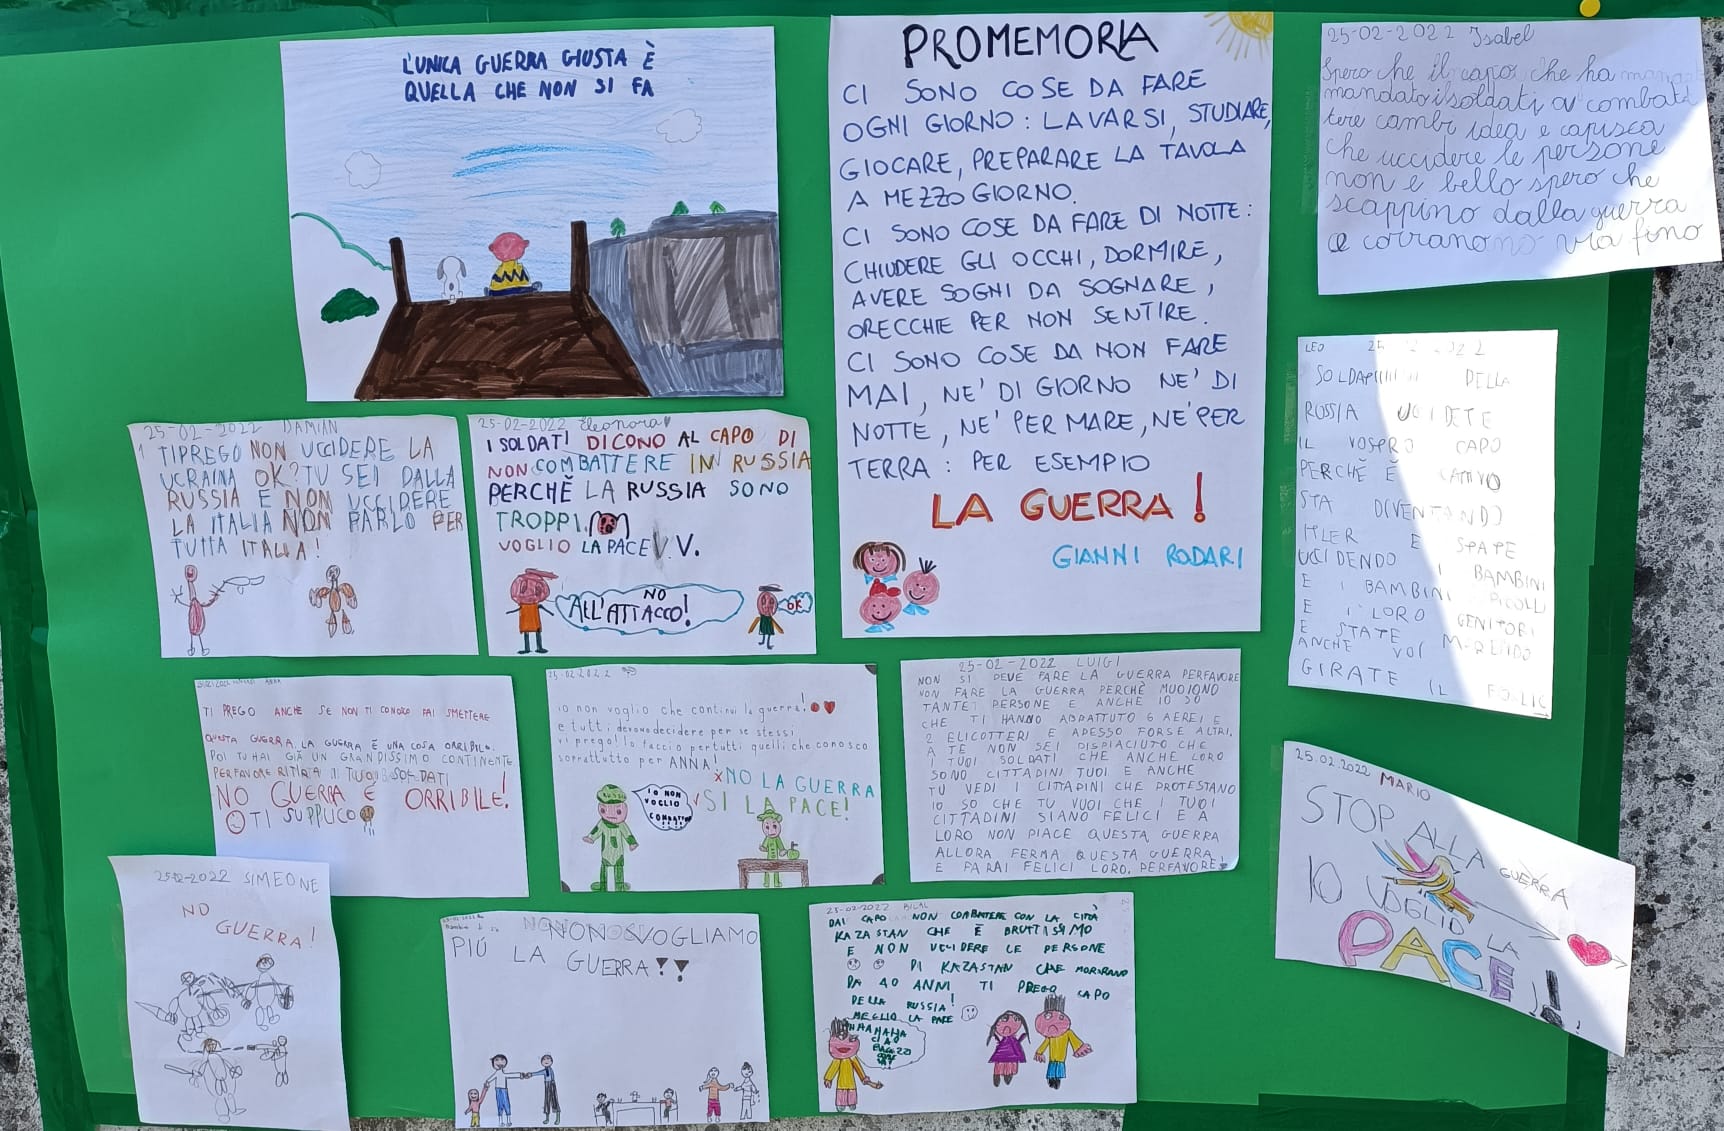 L'UNICA GUERRA GIUSTA È
QUELLA CHE NON SI FA
PROMEMORIA
CI SONO COSE DA FARE
OGNI GIORNO: LAVARSI, STUDIARE,
GIOCARE, PREPARARE LA TAVOLA
A MEZZOGIORNO.
CI SONO COSE DA FARE DI NOTTE:
CHIUDERE GLI OCCHI, DORMIRE,
AVERE SOGNI DA SOGNARE,
ORECCHIE PER NON SENTIRE.
CI SONO COSE DA NON FARE
MAI, NE' DI GIORNO NE' DI
NOTTE, NE' PER MARE, NE' PER
TERRA: PER ESEMPIO
LA GUERRA!
GIANNI RODARI
25-02-2022 Isabel
Spero che il capo che ha
mandato i soldati a combat
tere cambi idea e capisca
che uccidere le persone
non e bello spero che
scappino dalla guerra
e corrano via fino
25-02-2022 DAMIAN
TI PREGO NON UCCIDERE LA
UCRAINA OK? TU SEI DALLA
RUSSIA E NON UCCIDERE
LA ITALIA NON PARLO PER
TUTTA ITALIA!
25-02-2022 Eleonora
I SOLDATI DICONO AL CAPO DI
NON COMBATTERE IN RUSSIA
PERCHÈ LA RUSSIA SONO
TROPPI.
VOGLIO LA PACE V.V.
NO
ALL'ATTACCO!
OK
LEO 25 2022
DELLA
RUSSIA
IL CAPO
PERCHÈ È
STA DIVENTANDO
ITLER E STATE
UCCIDENDO I BAMBINI
E I BAMBINI PICOLLI
E I LORO GENITORI
E STATE
ANCHE VOI
GIRATE IL
TI PREGO ANCHE SE NON TI CONOSCO FAI SMETTERE
QUESTA GUERRA. LA GUERRA È UNA COSA ORRIBILE.
POI TU HAI GIÀ UN GRANDISSIMO CONTINENTE
PERFAVORE RITIRA I TUOI SOLDATI
NO GUERRA È ORRIBILE!
TI SUPPLICO
25-02-2022
io non voglio che continui la guerra!
e tutti devono decidere per se stessi
vi prego! lo faccio per tutti quelli che conosco
soprattutto per ANNA!
NO LA GUERRA
SI LA PACE!
RUSSIA
IO NON
VOGLIO
COMBATTERE
25-02-2022 LUIGI
NON SI DEVE FARE LA GUERRA PERFAVORE
NON FARE LA GUERRA PERCHÈ MUOIONO
TANTE PERSONE E ANCHE IO SO
CHE TI HANNO ABBATTUTO 6 AEREI E
2 ELICOTTERI E ADESSO FORSE ALTRI.
A TE NON SEI DISPIACIUTO CHE
I TUOI SOLDATI CHE ANCHE LORO
SONO CITTADINI TUOI E ANCHE
TU VEDI I CITTADINI CHE PROTESTANO
IO SO CHE TU VUOI CHE I TUOI
CITTADINI SIANO FELICI E A
LORO NON PIACE QUESTA GUERRA
ALLORA FERMA QUESTA GUERRA
E FARAI FELICI LORO. PERFAVORE!
25.02.2022 MARIO
STOP ALLA GUERRA
IO VOGLIO LA
PACE!
25-02-2022 SIMEONE
NO
GUERRA!
NON VOGLIAMO
PIÙ LA GUERRA!!
25-02-2022 BILAL
DAI CAPO NON COMBATERE CON LA CITÀ
KAZASTAN CHE È BRUTTISSIMO
E NON UCCIDERE LE PERSONE
DI KAZASTAN CHE MORIRANO
DA 40 ANNI TI PREGO CAPO
DELLA RUSSIA!
MEGLIO LA PACE